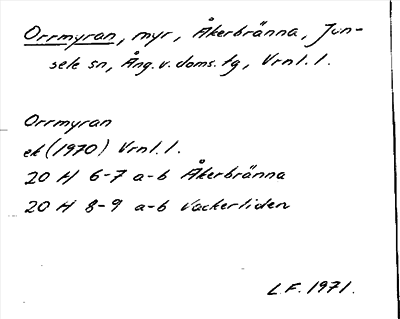 Orrmyran, myr, Åkerbränna, Jun-
sele sn, Ång. v. doms. tg, Vrnl. l.
Orrmyran
ek (1970) Vrnl. l.
20 H 6-7 a-b Åkerbränna
20 H 8-9 a-b Vackerliden
L.F. 1971.